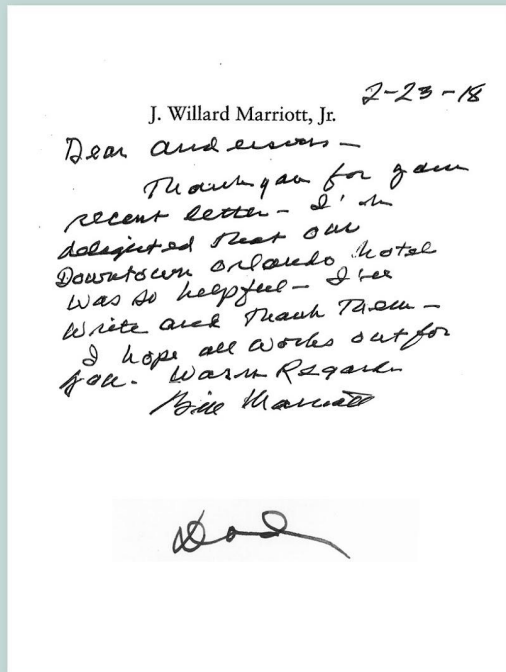 2-23-18
J. Willard Marriott, Jr.
Dear Andersons -
Thank you for your
recent letter - I'm
delighted that our
Downtown Orlando hotel
was so helpful - I'll
write and thank them -
I hope all works out for
you. Warm Regards
Bill Marriott